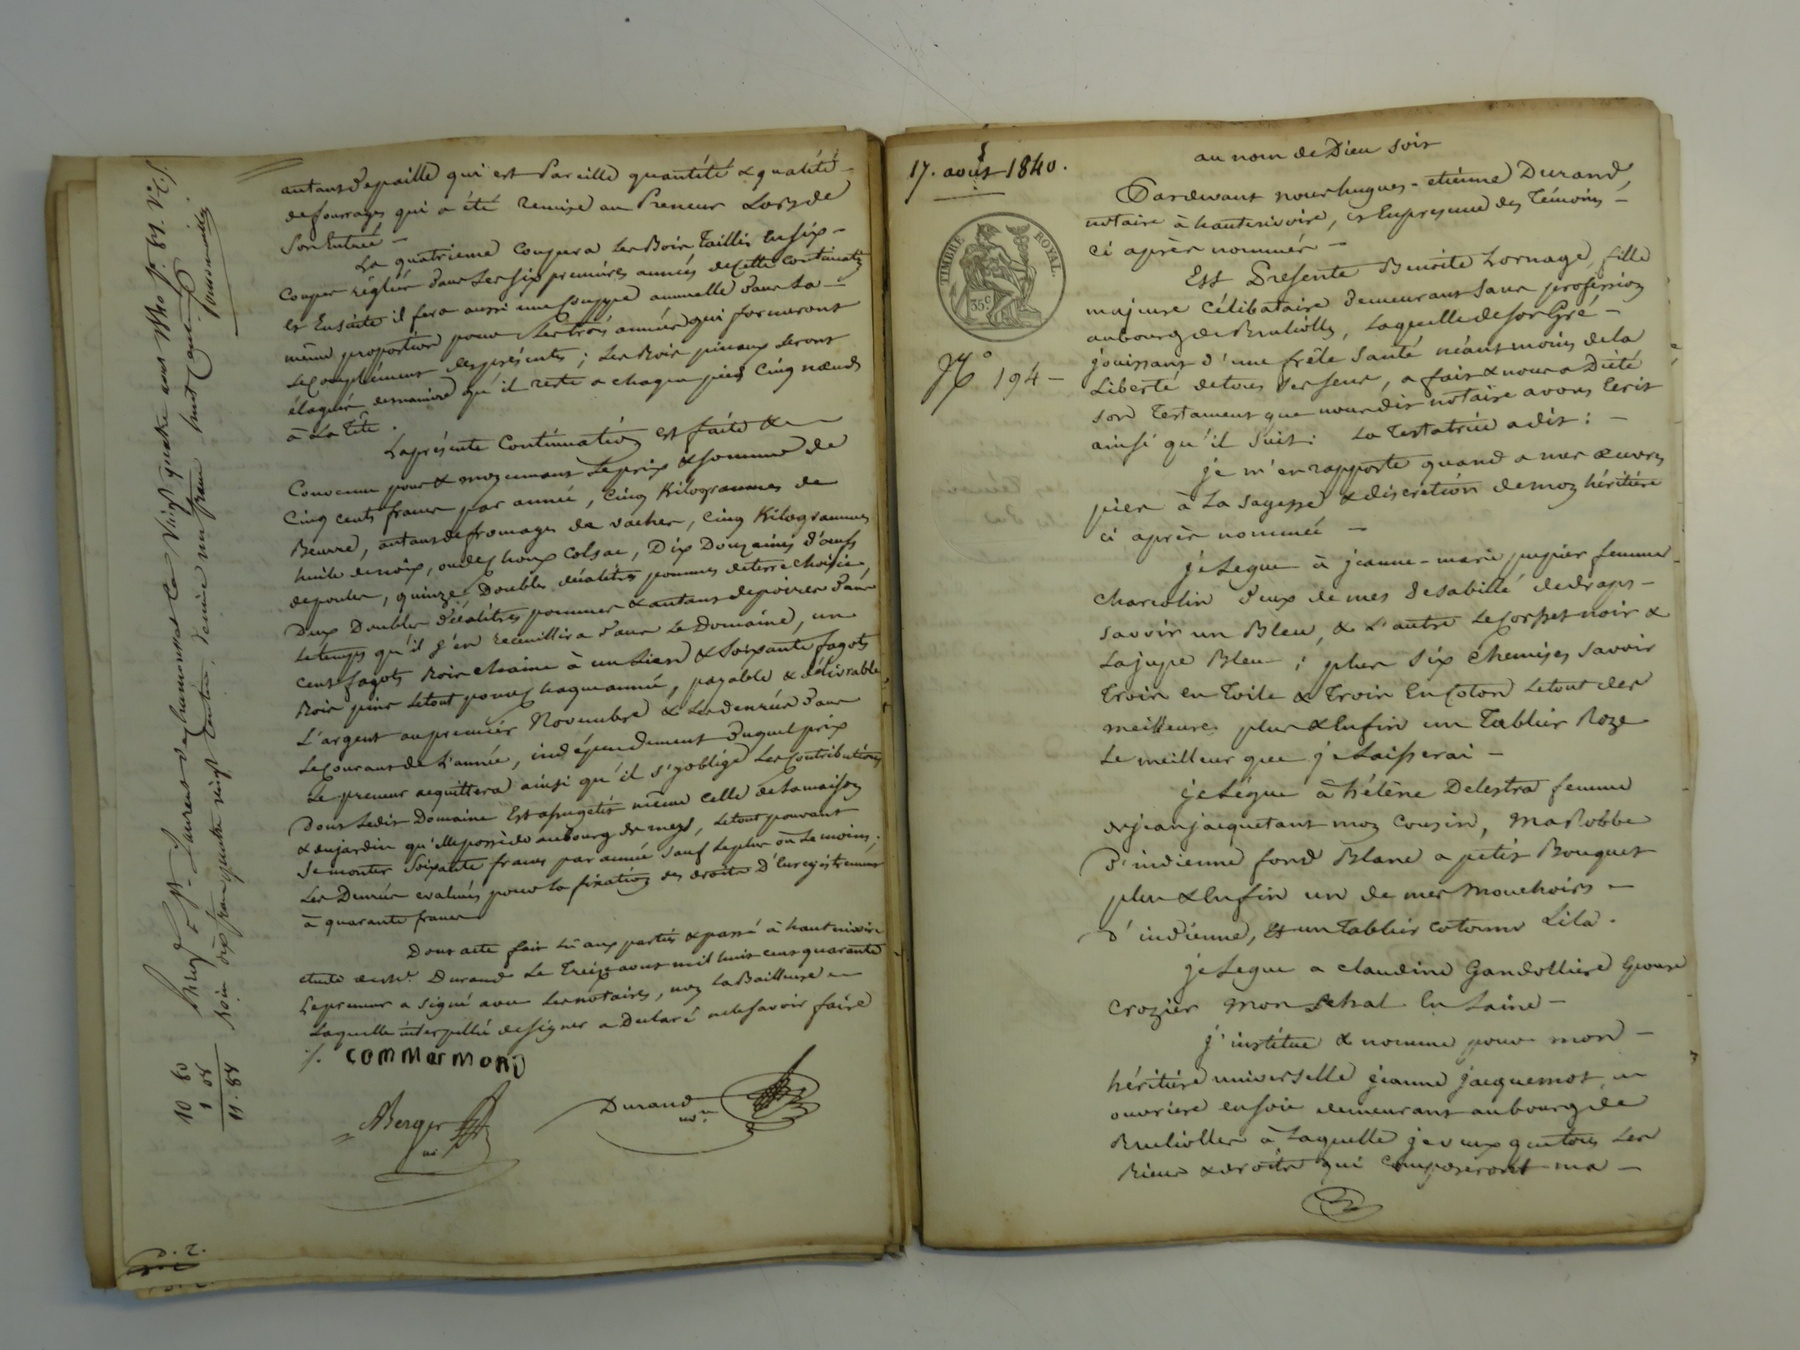 autant de paille qui est Pareille quantité & qualité
de fourrages qui a été remise au Preneur Lors de
Son Entrée —
Le quatrieme coupera Les Bois Taillis En six —
Coupes réglées dans Les six premières années de cette continuation
et Ensuite il fera aussi une Couppe annuelle dans La —
même proportion pour Les trois années qui formeront
Le Complément des présentes ; Les Bois pineaux Seront
élagués de manière qu'il reste a chaque pied Cinq nœuds
à La Tête .
La présente Continuation est faite &
Convenue pour & moyennant Le prix & somme de
Cinq cents francs par année, Cinq Kilogrammes de
Beurre, autant de fromages de vaches, Cinq Kilogrammes
huile de noix, ou de choux Colsac, Dix Douzaines d'œufs
de poules, quinze Doubles décalitres pommes de terre choisies,
Deux Doubles décalitres pommes & autant de poires dans
Le temps qu'il s'en recueillira dans Le Domaine, un
cent fagots Bois chaine à un Lien & soixante fagots
Bois pins Le tout pour chaque année, payable & délivrable
L'argent au premier Novembre & Les denrées dans
Le Courant de L'année, indépendement duquel prix
Le preneur acquittera ainsi qu'il s'y oblige Les Contributions
Dont Ledit Domaine Est assugetis même celle de La maison
& du jardin qu'elle possède au bourg de meys, Le tout pouvant
Se monter Soixante francs par année Sauf Le plus ou Le moins.
Les Denrées evaluées pour la fixation des droits d'Enregistrement
à quarante francs
Dont acte fait Lû aux parties & passé à hauterivoire
étude de Me. Durand Le Treize aout mil huit cent quarante
Le preneur a Signé avec Les notaires, non La Bailleuse
Laquelle interpellée de Signer a Déclaré ne le Savoir faire
./. commarmond
ABerger
ne
Durand
nore.
10 80
1 08
11. 88
17. août 1840.
TIMBRE ROYAL.
35c
No 194 —
au nom de Dieu soit
Pardevant nous hugues-etienne Durand,
notaire à hauterivoire, et En presence des Témoins —
ci après nommés —
Est Présente Benoite Lornage, fille
majeure Célibataire demeurant Sans profession
au bourg de Brulioles, Laquelle de son Gré —
jouissant d'une frêle Santé néantmoins de la
Liberté de tous Ses Sens, a fait & nous a Dicté
son Testament que nous dit notaire avons Ecrit
ainsi qu'il Suit : La Testatrice a dit : —
je m'en rapporte quand a mes œuvres
pies à La Sagesse & discrétion de mon héritière
ci après nommée —
je Legue à jeanne-marie pupier femme
Charcolin deux de mes desabillé de draps —
Savoir un Bleu, & L'autre Le Corset noir &
La jupe Bleu ; plus Six chemises Savoir
Trois en Toile & Trois En Coton Le tout des
meilleures plus & Enfin un Tablier Roze
Le meilleur que je Laisserai —
je Légue à hélène Delestra femme
de jean jacquetant mon Cousin, Ma Robbe
d'indienne fond Blanc a petit Bouquet
plus & Enfin un de mes Mouchoirs —
d'indienne, Et un Tablier cotonne Lila .
je Legue a claudine Gandolliere
Crozier Mon Schal En Laine —
j'institue & nomme pour mon —
héritière universelle jeanne jacquemot —
ouvriere en soie demeurant au bourg de
Bruliolles à Laquelle je veux que tous Les
Biens & droits qui Composeront ma —